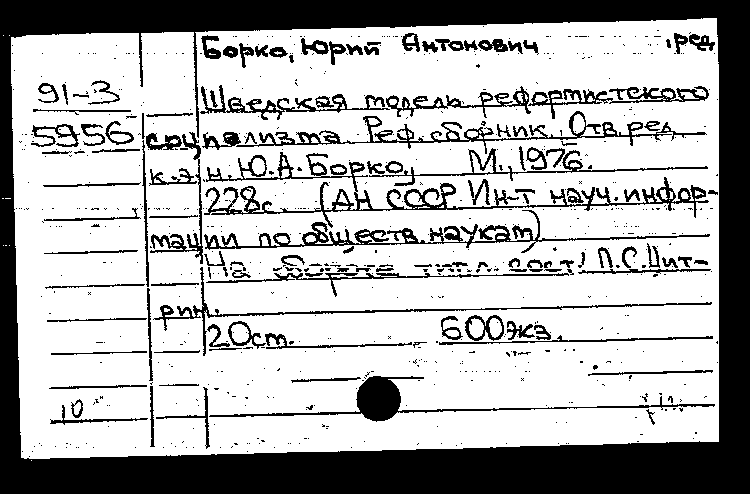 Борко, Юрий Антонович ,ред.
91-3 Шведская модель реформистского
5956 социализма. Реф. сборник. Отв. ред.
к.э.н. Ю.А. Борко. М., 1976.
228с. (АН СССР. Ин-т науч. инфор-
мации по обществ. наукам)
На обороте тит. л. сост: П.С. Цит-
рин.
20см. 600экз.
10